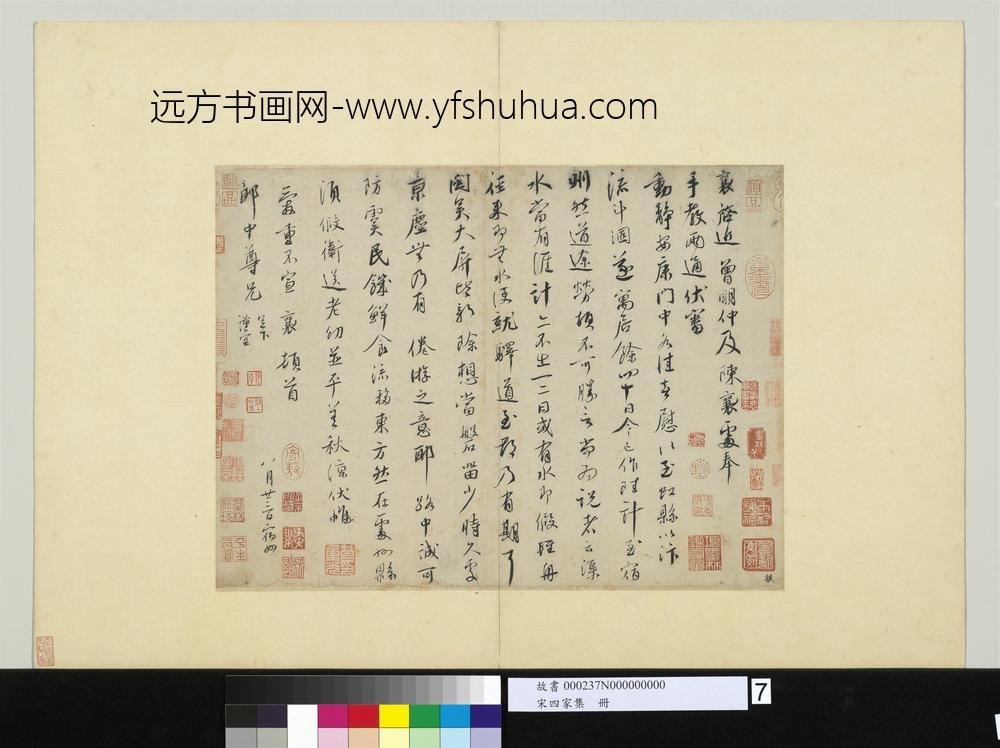 远方书画网-www.yfshuhua.com
襄啓近曾明仲及陳襄處奉
手教兩通伏審
動靜安康門中各佳喜慰以至虹縣以汴
流斗涸遂寓居餘四十日今已作陸計至宿
州然道途勞頓不可勝言尚為說者云渠
水當有涯計亦不出一二日或有水即假輕舟
徑來即無水便就驛道至都乃有期耳
閤吳大屏皆新除想當磐留少時久處
京塵無乃有倦游之意耶路中誠可
防虞民饑鮮食流移東方然在處州縣
須假衛送老幼並平善秋涼伏惟
愛重不宣襄頓首
郎中尊兄
坐下
謹空
八月廿三日宿州
故書 000237N000000000
宋四家集 冊
7